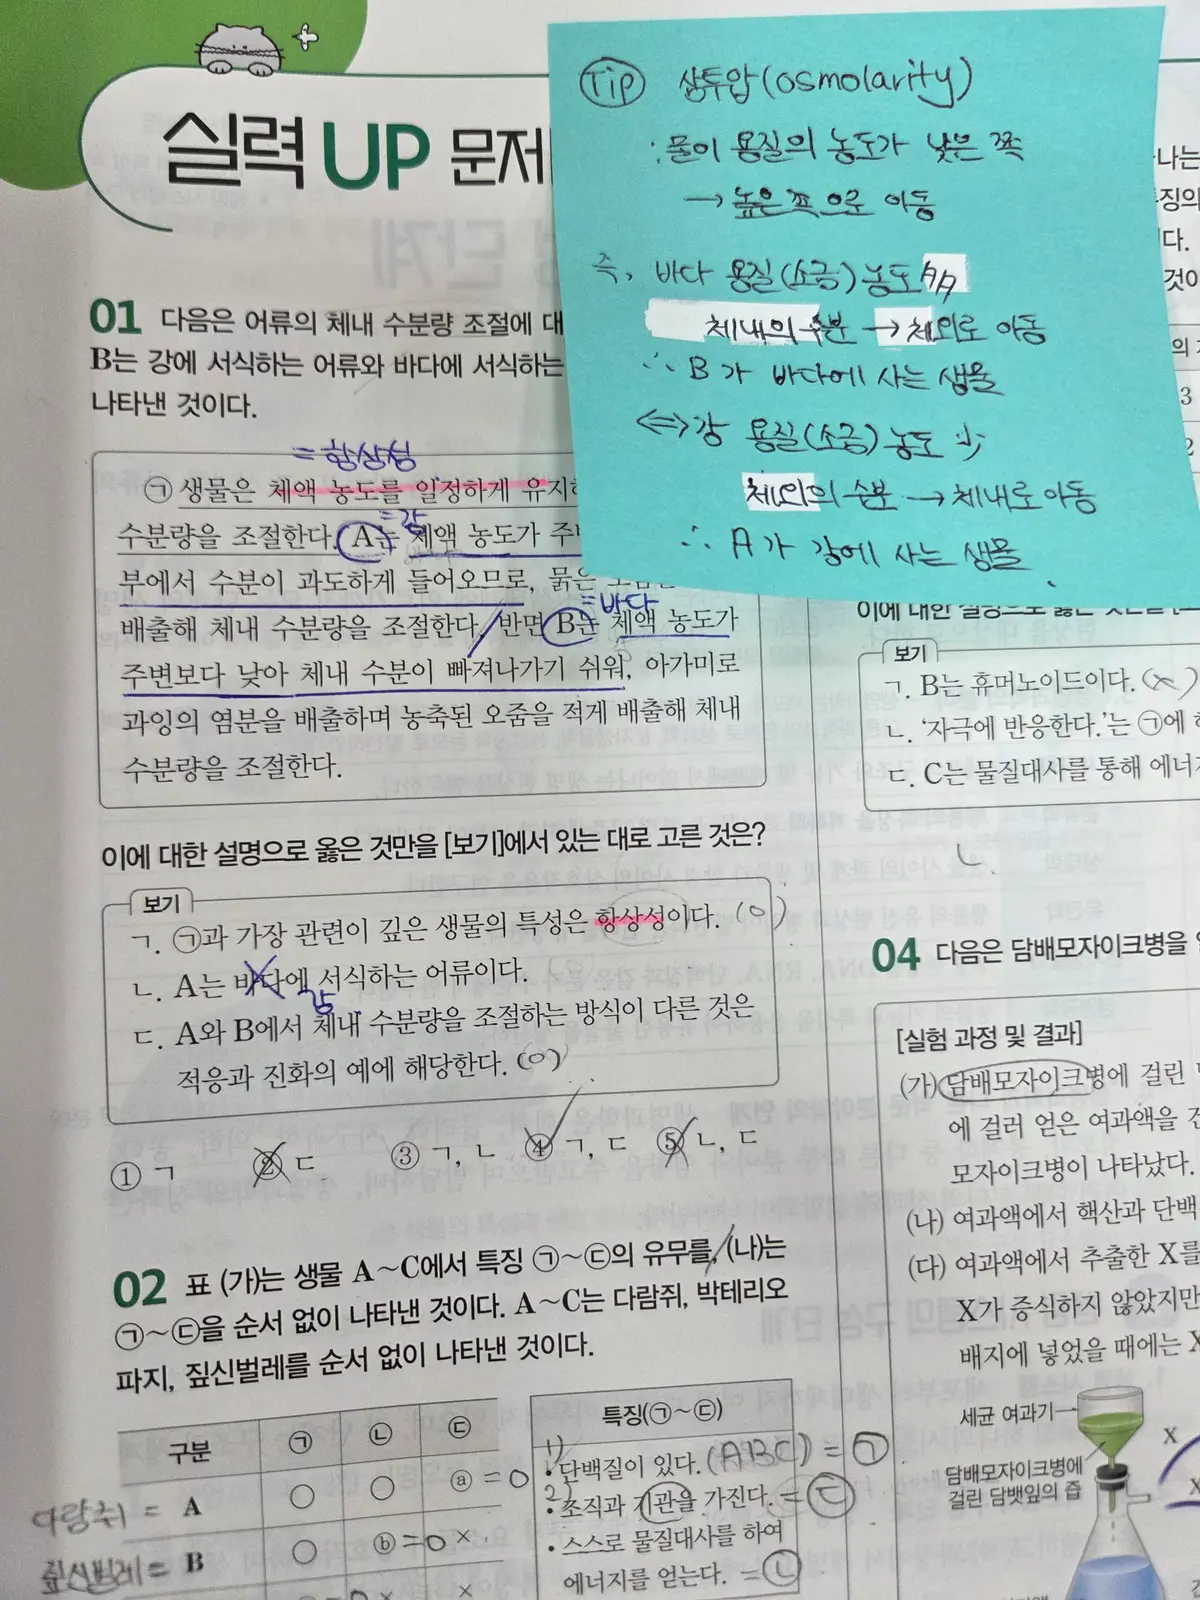 실력 UP 문제
Tip 삼투압(osmolarity)
: 물이 용질의 농도가 낮은 쪽
→ 높은 쪽으로 이동
즉, 바다 용질(소금) 농도 多
체내의 수분 → 체외로 이동
∴ B가 바다에 사는 생물
⟺ 강 용질(소금) 농도 小
체외의 수분 → 체내로 이동
∴ A가 강에 사는 생물
01 다음은 어류의 체내 수분량 조절에 대
B는 강에 서식하는 어류와 바다에 서식하는
나타낸 것이다.
= 항상성
㉠ 생물은 체액 농도를 일정하게 유지
= 강
수분량을 조절한다. A는 체액 농도가 주변
부에서 수분이 과도하게 들어오므로, 묽은
= 바다
배출해 체내 수분량을 조절한다. 반면 B는 체액 농도가
주변보다 낮아 체내 수분이 빠져나가기 쉬워, 아가미로
과잉의 염분을 배출하며 농축된 오줌을 적게 배출해 체내
수분량을 조절한다.
이에 대한 설명으로 옳은 것만을 [보기]에서 있는 대로 고른 것은?
보기
ㄱ. ㉠과 가장 관련이 깊은 생물의 특성은 항상성이다. (O)
ㄴ. A는 바다에 서식하는 어류이다.
강
ㄷ. A와 B에서 체내 수분량을 조절하는 방식이 다른 것은
적응과 진화의 예에 해당한다. (O)
① ㄱ ② ㄷ ③ ㄱ, ㄴ ④ ㄱ, ㄷ ⑤ ㄴ, ㄷ
02 표 (가)는 생물 A~C에서 특징 ㉠~㉢의 유무를, (나)는
㉠~㉢을 순서 없이 나타낸 것이다. A~C는 다람쥐, 박테리오
파지, 짚신벌레를 순서 없이 나타낸 것이다.
구분 ㉠ ㉡ ㉢
다람쥐 = A ○ ○ ⓐ = O
짚신벌레 = B ○ ⓑ = O ×
×
특징(㉠~㉢)
1)
• 단백질이 있다. (ABC) = ㉠
2)
• 조직과 기관을 가진다. = ㉢
• 스스로 물질대사를 하여
에너지를 얻는다. = ㉡
나는
특징의
다.
것이
의
3
2
보기
ㄱ. B는 휴머노이드이다. (×)
ㄴ. '자극에 반응한다.'는 ㉠에
ㄷ. C는 물질대사를 통해 에너
ㄴ
04 다음은 담배모자이크병을
[실험 과정 및 결과]
(가) 담배모자이크병에 걸린
에 걸러 얻은 여과액을 건
모자이크병이 나타났다.
(나) 여과액에서 핵산과 단백
(다) 여과액에서 추출한 X를
X가 증식하지 않았지만
배지에 넣었을 때에는 X
세균 여과기
담배모자이크병에
걸린 담뱃잎의 즙
X